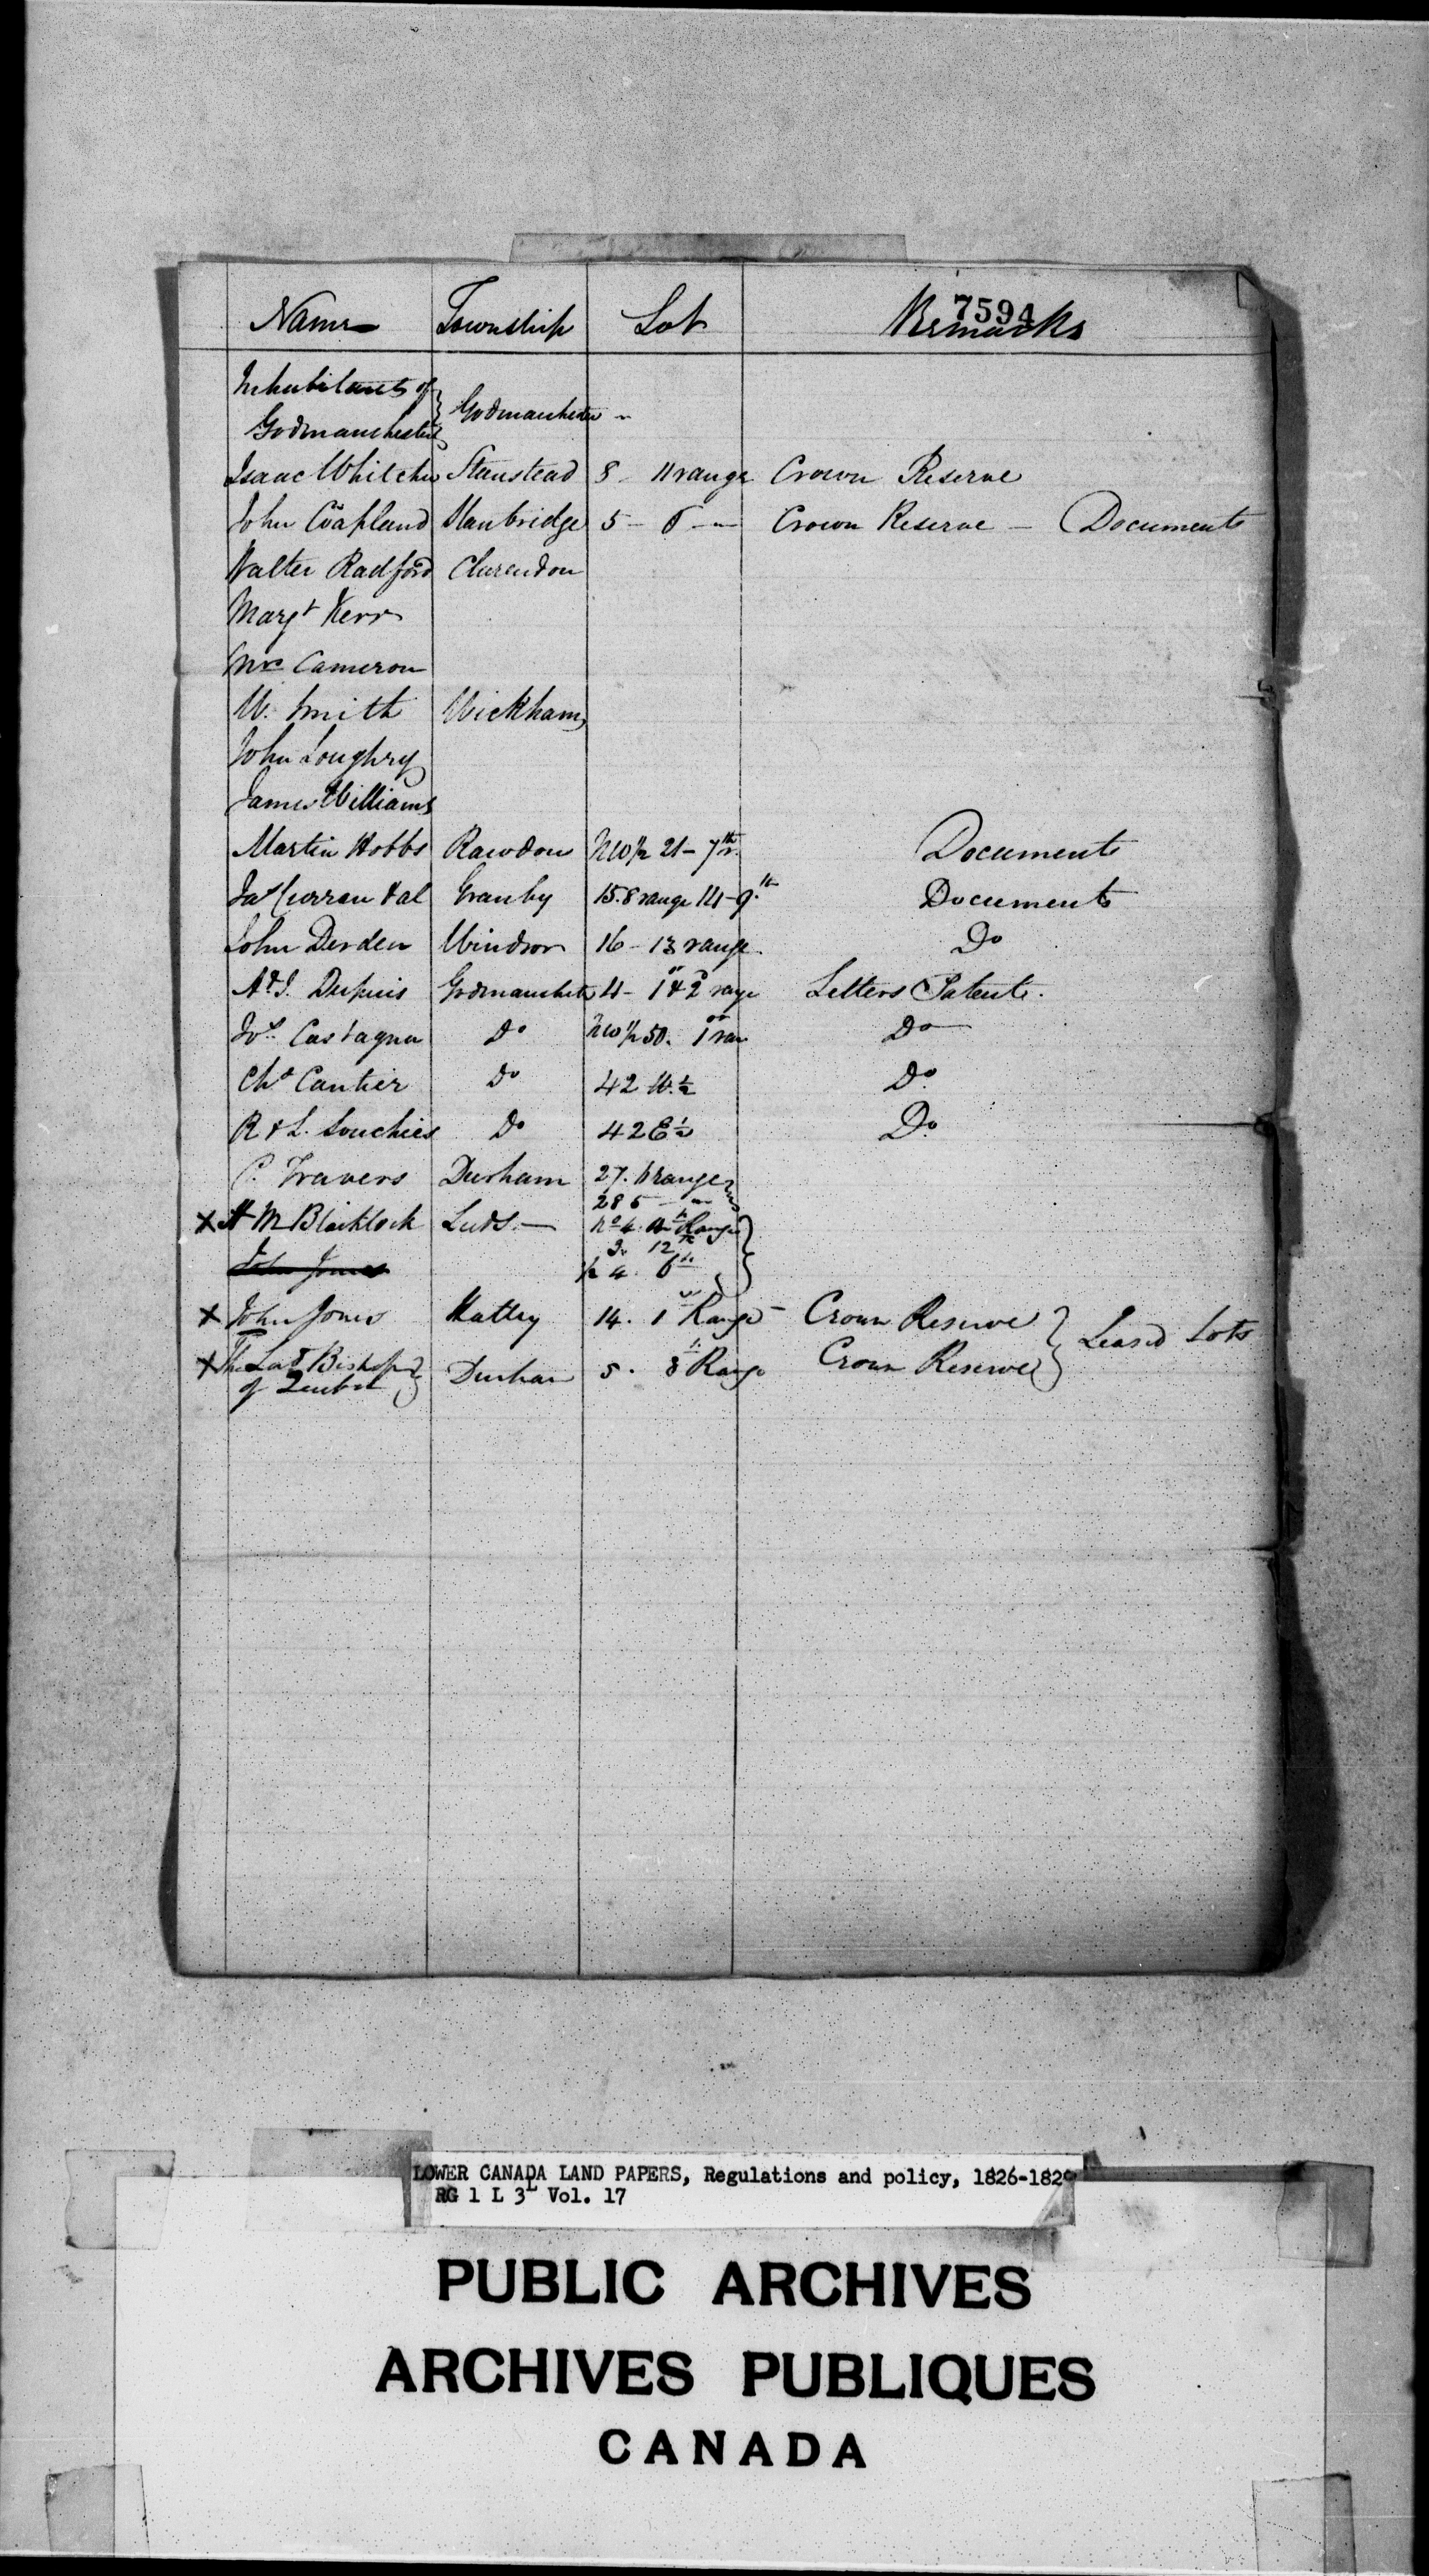 7594
Name Township Lot Remarks
Inhabitants of
Godmanchester } Godmanchester "
Isaac Whitcher Stanstead 8 - 11 range Crown Reserve
John Coapland Stanbridge 5 - 6 - " Crown Reserve - Documents
Walter Radford Clarendon
Margt Kerr
Mrs Cameron
W. Smith Wickham
John Loughry
James Williams
Martin Hobbs Rawdon NW 1/2 21 - 7th r. Documents
Jas Curran & al Granby 15. 8 range 14 - 9.th Documents
John Derden Windsor 16 - 13 range. Do
A & J. Dupuis Godmanchester 4 - 1 & 2 range Letters Patent.
Castagner Do NW 1/2 50. 1 ran Do
Chs Cantier Do 42 W. 1/2 Do
R & L. Souchies Do 42 E 1/2 Do
C. Travers Durham 27. 6 range }
28 5 - " }
X H M Blacklock Leeds - No 4. Range }
12 }
John Jones 1/2 4. 6th }
X John Jones Hatley 14. 1 Range - Crown Reserve } Leased Lots
X The Late Bishop
of Quebec } Durham 5. 8 Range Crown Reserve }
LOWER CANADA LAND PAPERS, Regulations and policy, 1826-1829
RG 1 L 3L Vol. 17
PUBLIC ARCHIVES
ARCHIVES PUBLIQUES
CANADA